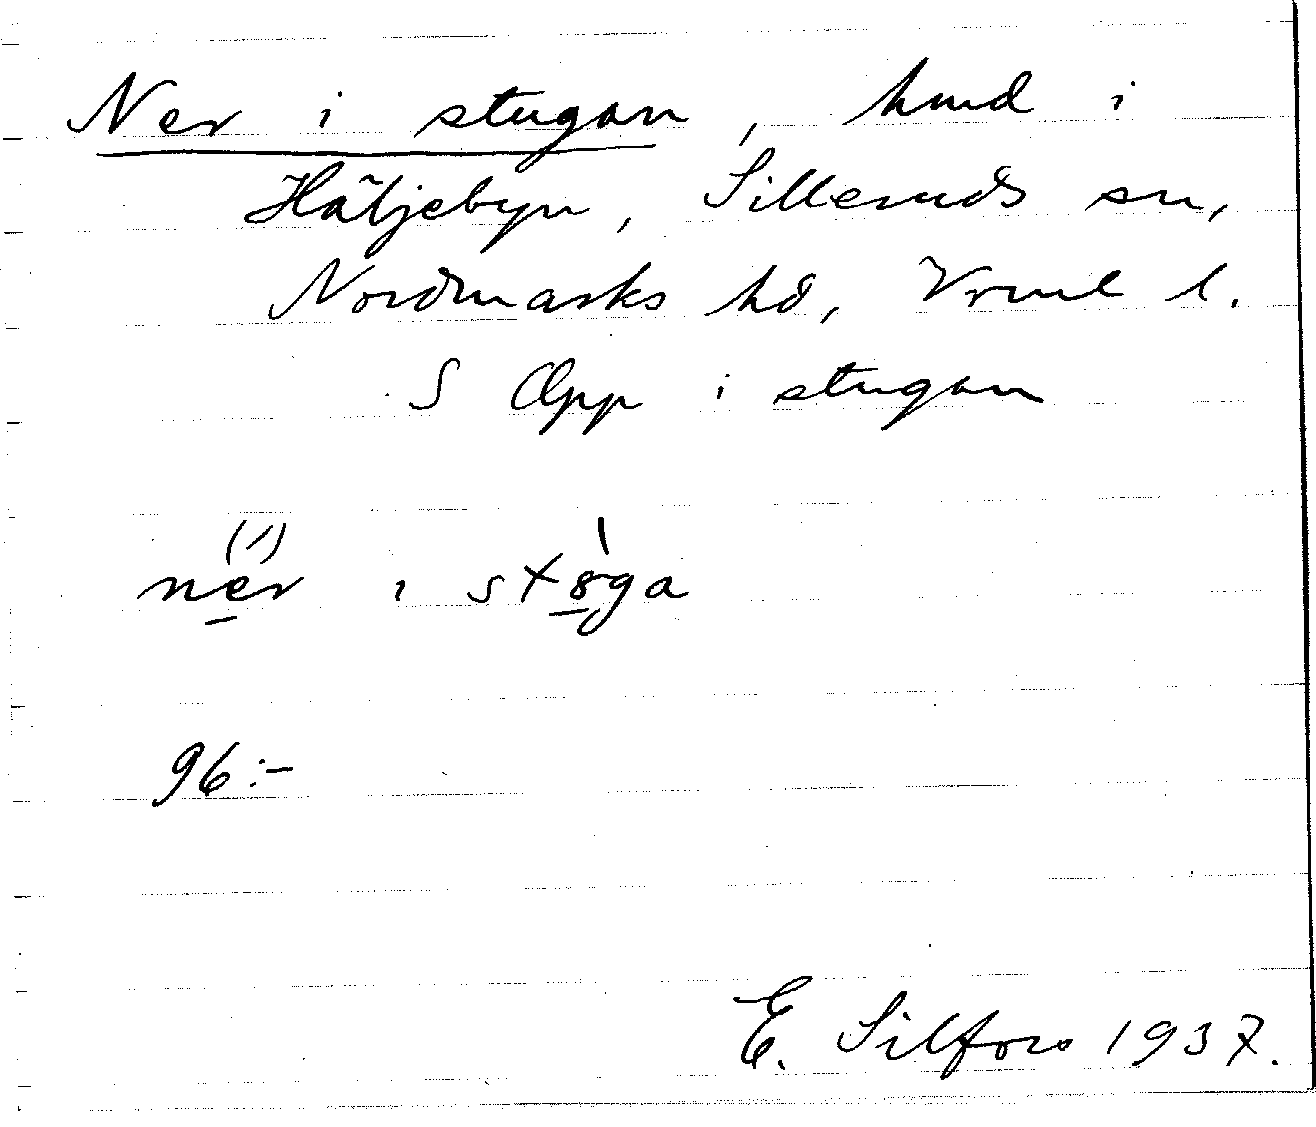 Ner i stugan, hmd i
Häljebyn, Silleruds sn,
Nordmarks hd, Vrml l.
S Opp i stugan
(´)
ner i støga
96:-
E. Silfors 1937.